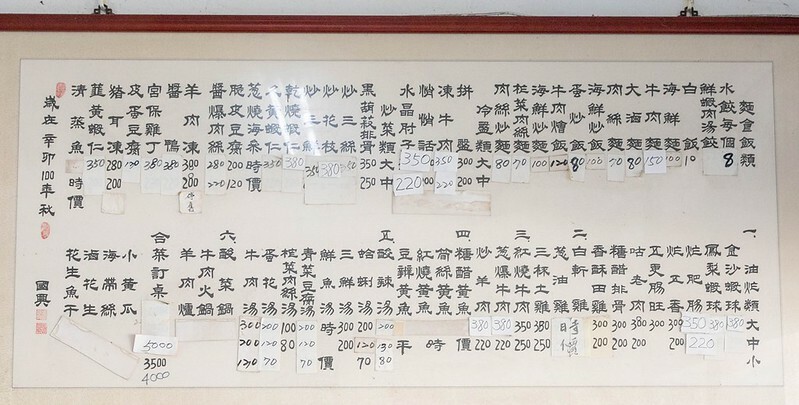 麵食飯類
水餃每個 8
鮮蝦肉湯餃
白飯 10
海鮮麵 100
牛肉麵 150
大滷麵 80
肉絲麵 70
海鮮炒飯 100
蛋炒飯 80
牛肉燴飯 120
海鮮炒麵 100
榨菜肉絲麵 70
肉絲炒麵 80
冷盤類 大 中
拼盤 300 200
凍牛肉 350 220
悄悄話
水晶肘子 350 220
炒菜類 大 中
黑胡椒排骨 350 250
炒三絲
炒花枝 380
炒三鮮 350
乾燒蝦仁 380
蝦仁 350
蔥燒海參 時價
脆皮豆腐 200 120
醬爆肉絲 280 220
羊肉凍 300 200
醬鴨 380
宮保雞丁 380
皮蛋豆腐 120
豬耳凍 280 200
韮黃蝦仁 350
清蒸魚 時價
歲在辛卯100年秋
一.油炸類 大 中 小
金沙蝦球 380
鳳梨蝦球 380
炸肥腸 350 220
炸五香 200
五更腸旺 300 200
咕老肉 300 200
糖醋排骨 300 200
香酥田雞 300 200
二.白斬雞
蔥油雞
三.三杯土雞 350 250
紅燒牛肉 350 250
蔥爆牛肉 380 220
炒羊肉 380 220
四.糖醋黃魚 時價
紅燒黃魚
豆瓣黃魚 平
五.酸辣湯 200 130 80
蛤蜊湯 200 120 70
三鮮湯 300 200
鮮魚湯 時價
青菜豆腐湯 200 120 70
榨菜肉絲湯 100 80
蛋花湯 200 120 70
牛肉湯 300 200 120
六.酸菜鍋
牛肉火鍋
羊肉爐
合菜訂桌 5000 3500 4000
小黃瓜
海帶絲
滷花生
花生魚干
國興